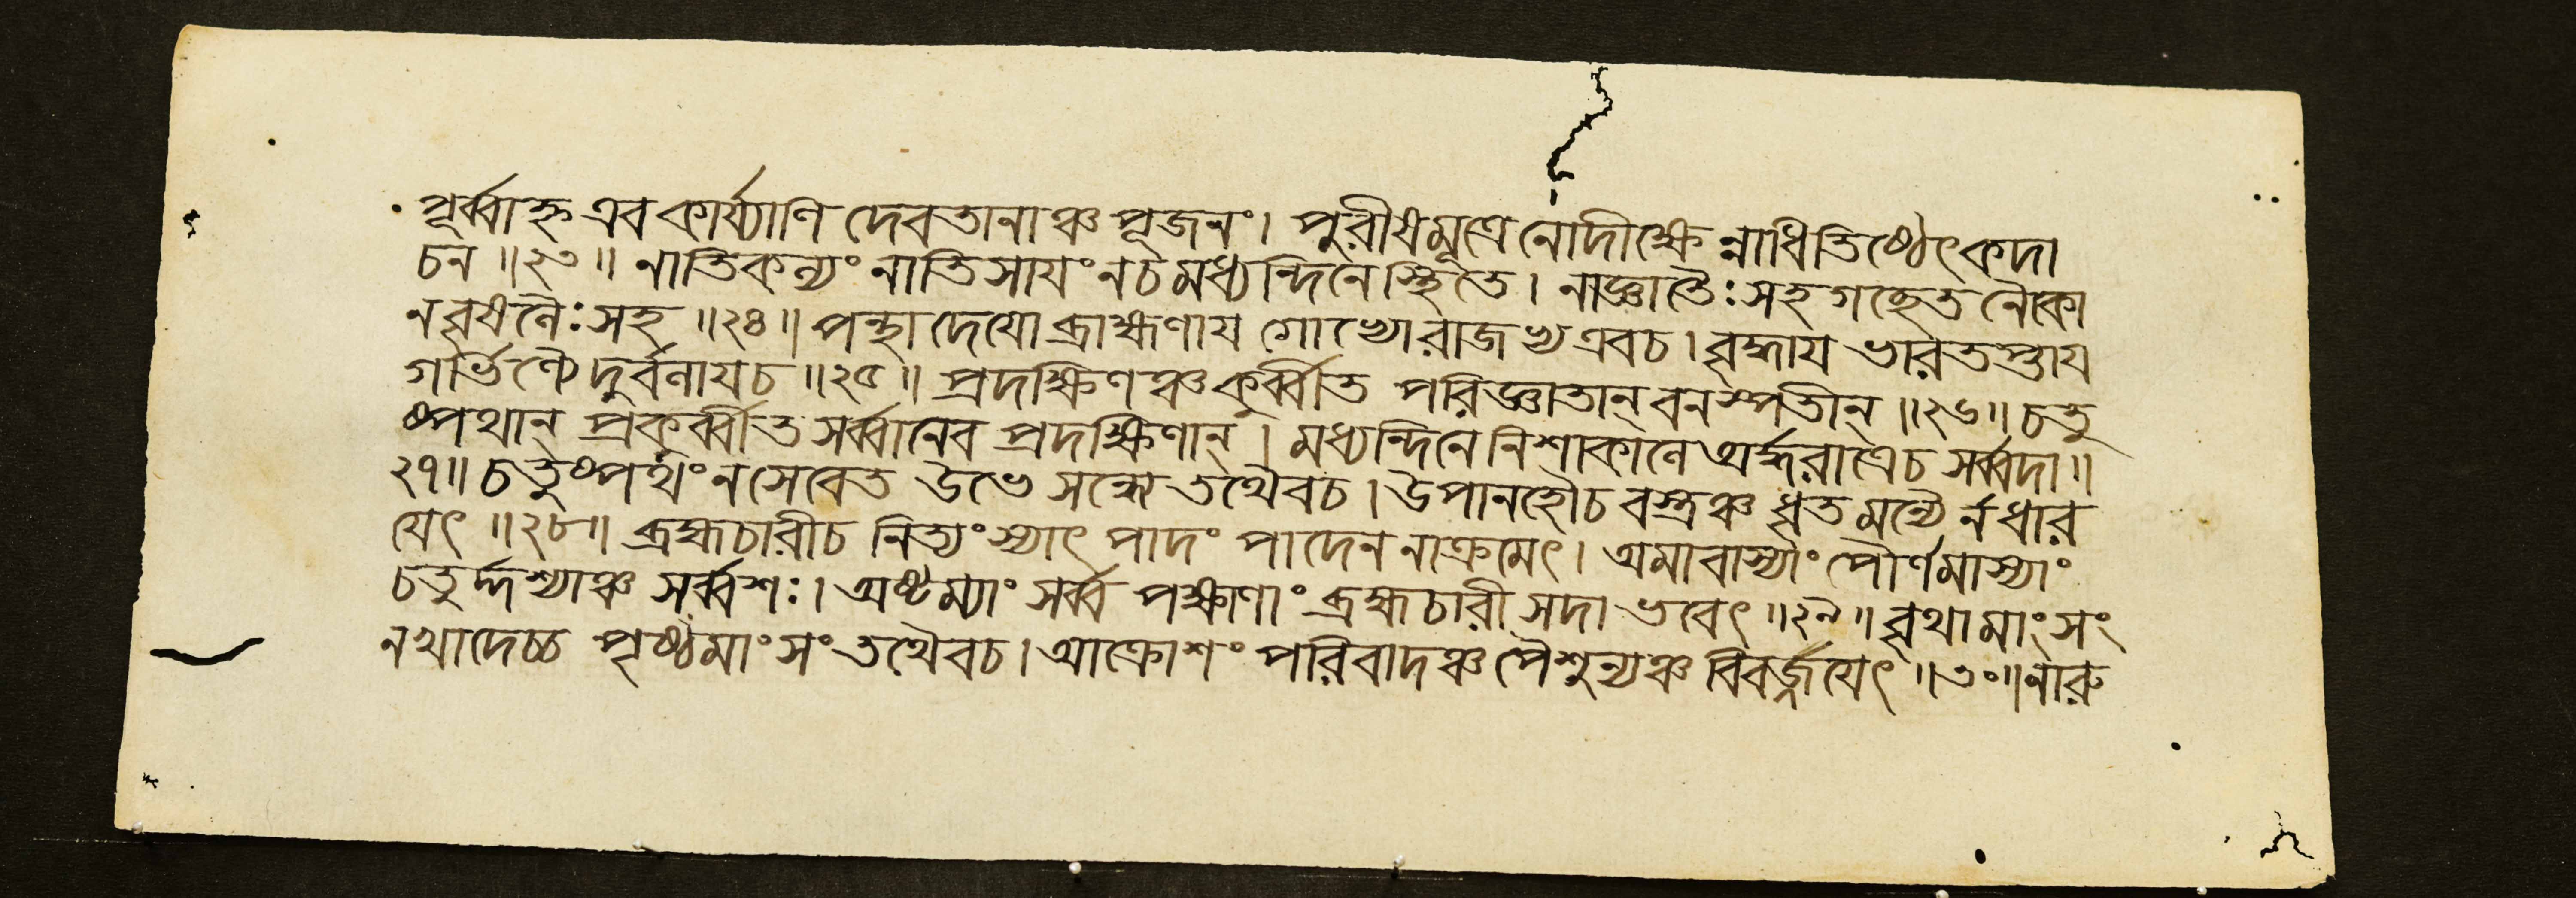 পূর্ব্বাহ্ন এব কার্য্যাণি দেবতানাঞ্চ পূজনং। পুরীষমূত্রে নোদীক্ষেন্নাধিতিষ্ঠেৎ কদা
চন ॥২৩॥ নাতিকল্যং নাতিসায়ং ন চ মধ্যন্দিনে স্থিতে। নাজ্ঞাতৈঃ সহ গচ্ছেত নৈকো
ন বৃষলৈঃ সহ ॥২৪॥ পন্থা দেয়ো ব্রাহ্মণায় গোভ্যো রাজভ্য এব চ। বৃদ্ধায় ভারতপ্তায়
গর্ভিণ্যৈ দুর্বলায় চ ॥২৫॥ প্রদক্ষিণঞ্চ কুর্ব্বীত পরিজ্ঞাতান্ বনস্পতীন্ ॥২৬॥ চতু
ষ্পথান্ প্রকুর্ব্বীত সর্ব্বানেব প্রদক্ষিণান্। মধ্যন্দিনে নিশাকালে অর্দ্ধরাত্রে চ সর্ব্বদা॥
২৭॥ চতুষ্পথং ন সেবেত উভে সন্ধ্যে তথৈব চ। উপানহৌ চ বস্ত্রঞ্চ ধৃতমন্যৈর্ন ধার
য়েৎ ॥২৮॥ ব্রহ্মচারী চ নিত্যং স্যাৎ পাদং পাদেন নাক্রমেৎ। অমাবাস্যাং পৌর্ণমাস্যাং
চতুর্দ্দশ্যাঞ্চ সর্ব্বশঃ। অষ্টম্যাং সর্ব্বপক্ষাণাং ব্রহ্মচারী সদা ভবেৎ ॥২৯॥ বৃথা মাংসং
ন খাদেচ্চ পৃষ্ঠমাংসং তথৈব চ। আক্রোশং পরিবাদঞ্চ পৈশুন্যঞ্চ বিবর্জ্জয়েৎ ॥৩০॥ নারু